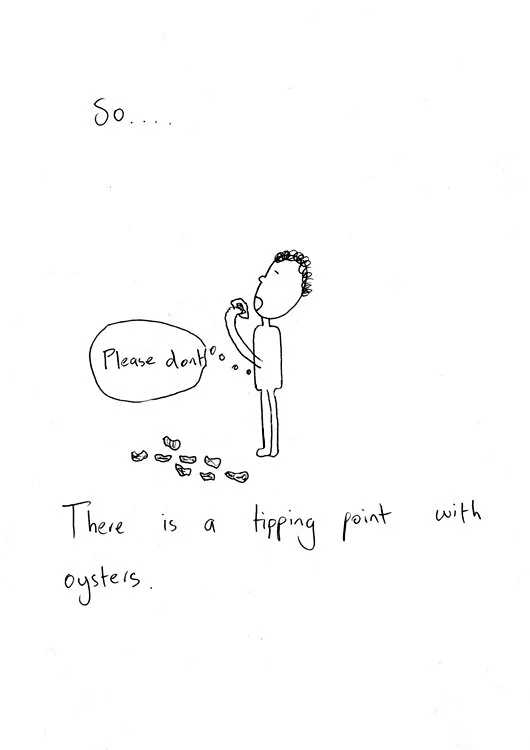 So....
Please dont
There is a tipping point with
oysters.